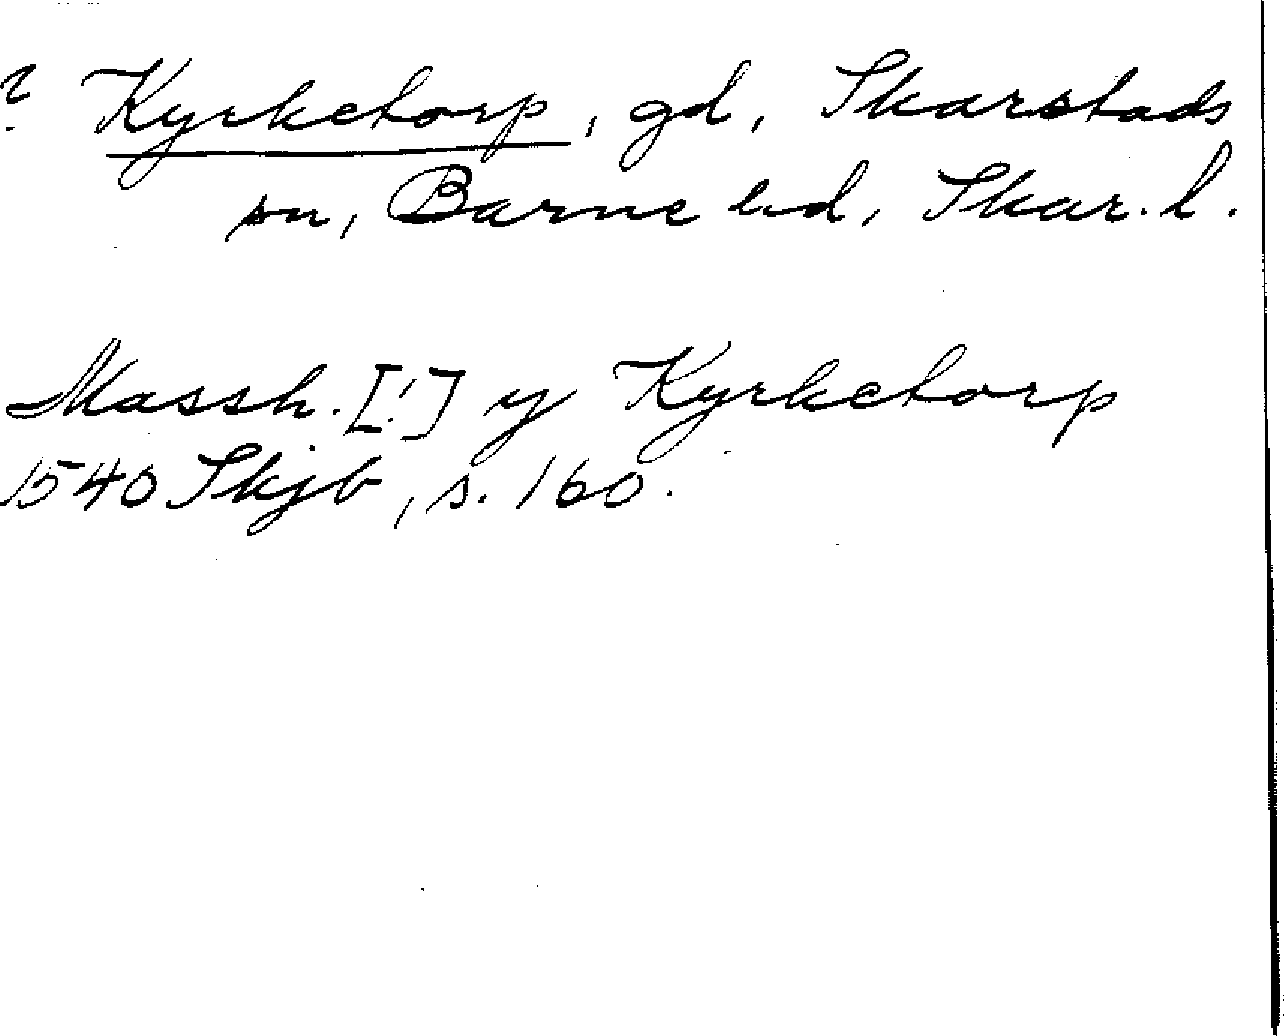 ? Kyrketorp, gd, Skarstads
sn, Barne hd, Skar. l.
Massh. [!] y Kyrketorp
1540 Skjb, s. 160.